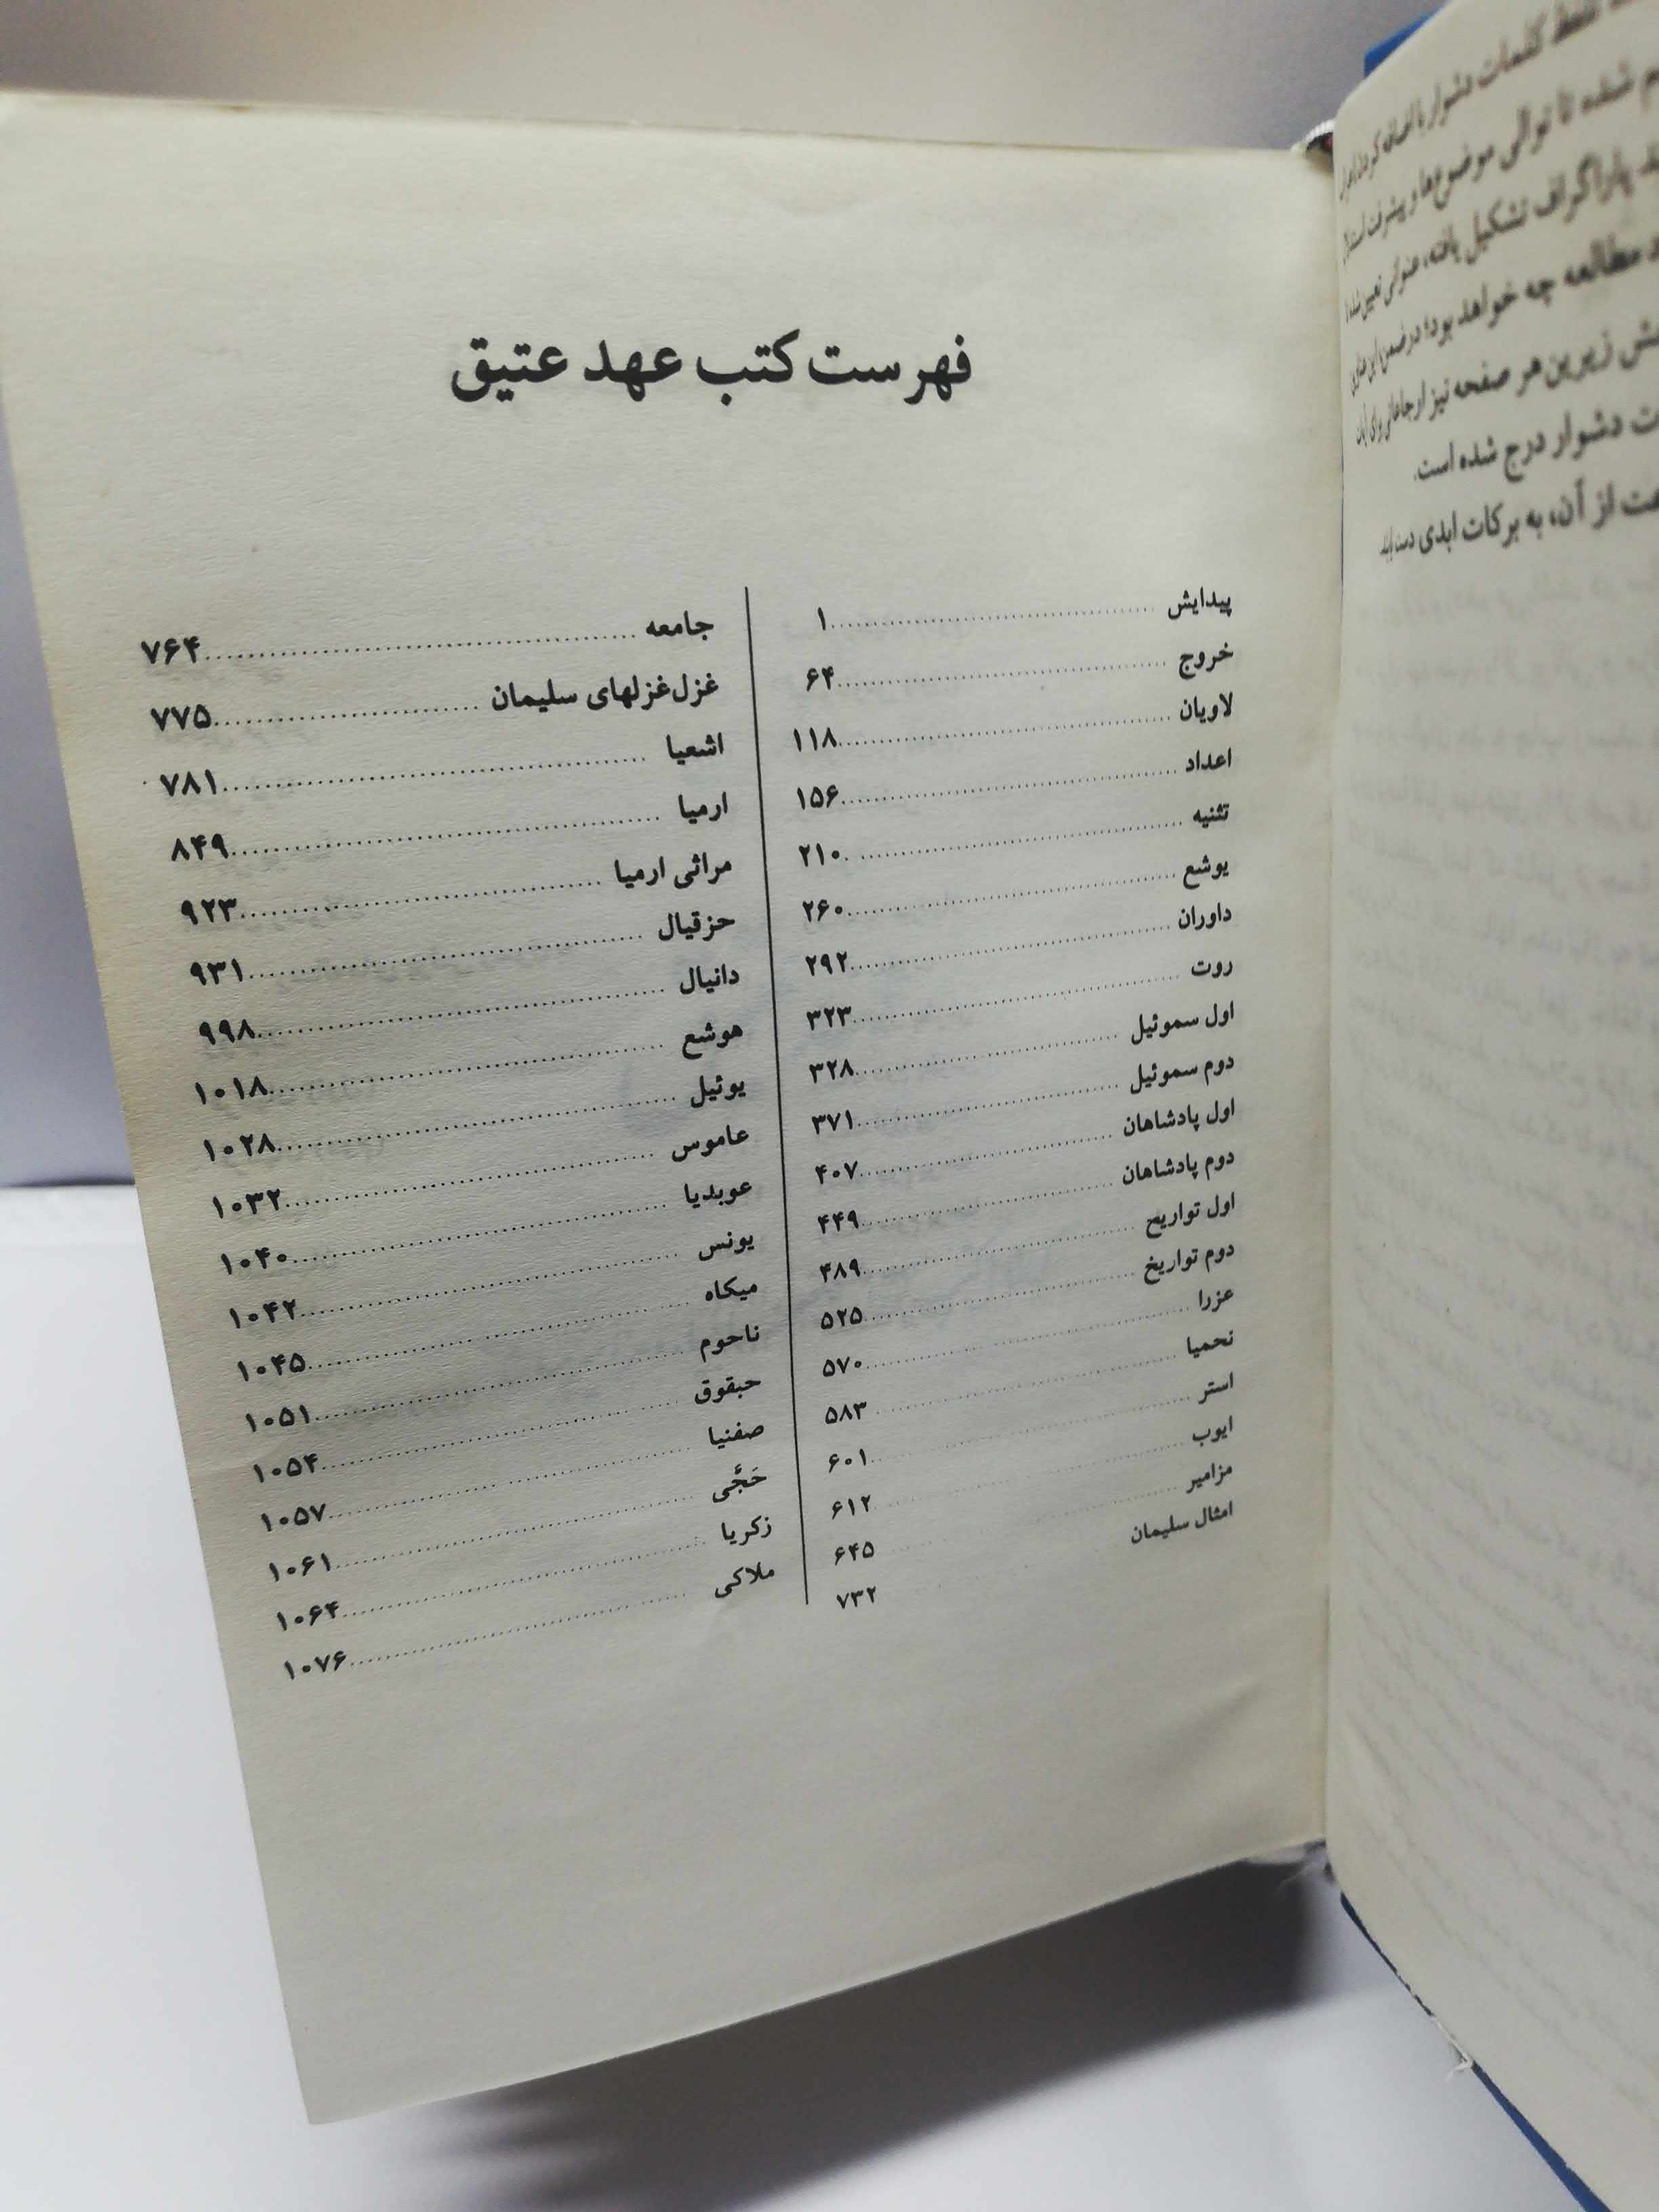 فهرست کتب عهد عتیق
پیدایش ۱
خروج ۶۴
لاویان ۱۱۸
اعداد ۱۵۶
تثنیه ۲۱۰
یوشع ۲۶۰
داوران ۲۹۲
روت ۳۲۳
اول سموئیل ۳۲۸
دوم سموئیل ۳۷۱
اول پادشاهان ۴۰۷
دوم پادشاهان ۴۴۹
اول تواریخ ۴۸۹
دوم تواریخ ۵۲۵
عزرا ۵۷۰
نحمیا ۵۸۳
استر ۶۰۱
ایوب ۶۱۲
مزامیر ۶۴۵
امثال سلیمان ۷۳۲
جامعه ۷۶۴
غزل‌غزلهای سلیمان ۷۷۵
اشعیا ۷۸۱
ارمیا ۸۴۹
مراثی ارمیا ۹۲۳
حزقیال ۹۳۱
دانیال ۹۹۸
هوشع ۱۰۱۸
یوئیل ۱۰۲۸
عاموس ۱۰۳۲
عوبدیا ۱۰۴۰
یونس ۱۰۴۲
میکاه ۱۰۴۵
ناحوم ۱۰۵۱
حبقوق ۱۰۵۴
صفنیا ۱۰۵۷
حَجَّی ۱۰۶۱
زکریا ۱۰۶۴
ملاکی ۱۰۷۶
فقط کلمات دشوار با
شده تا توالی موضوع‌ها و پیشرفت
پاراگراف تشکیل یافته، عنوانی تعیین شده
مطالعه چه خواهد بود؛ در ضمن این
زیرین هر صفحه نیز ارجاعاتی برای
دشوار درج شده است.
از آن، به برکات ابدی دست یابید